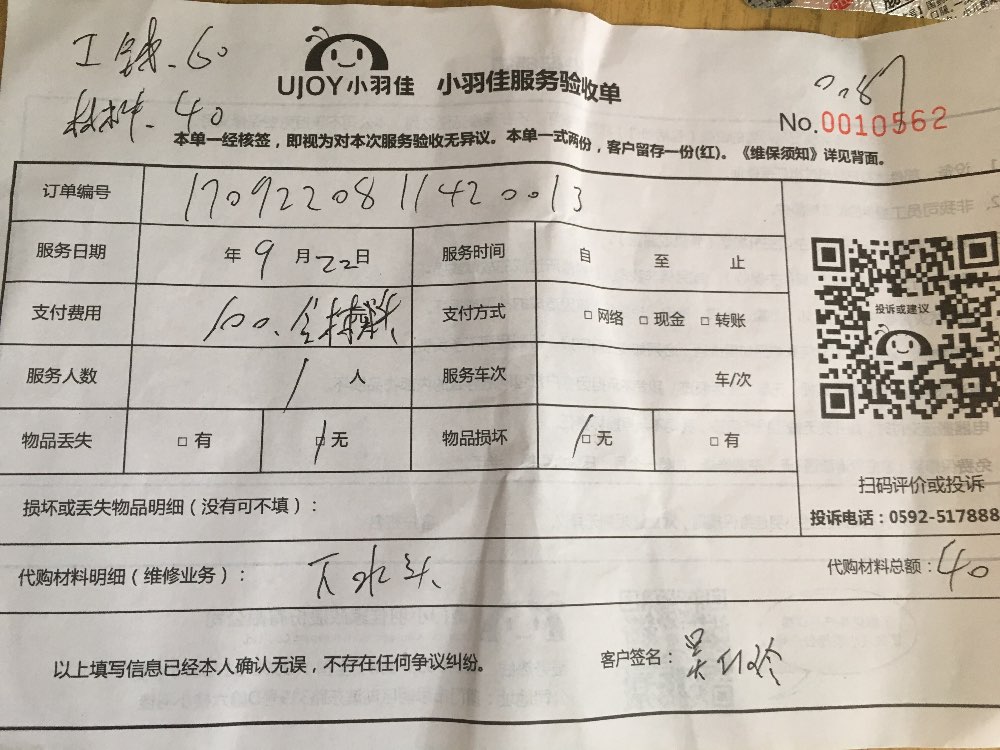 工钱.60
材料.40
UJOY小羽佳 小羽佳服务验收单
No.0010562
本单一经核签，即视为对本次服务验收无异议。本单一式两份，客户留存一份(红)。《维保须知》详见背面。
订单编号 1709220811420013
服务日期 年9月22日 服务时间 自 至 止
支付费用 100.含材料 支付方式 □网络 □现金 □转账
服务人数 1人 服务车次 车/次
物品丢失 □有 □无 物品损坏 □无 □有
投诉或建议
扫码评价或投诉
投诉电话：0592-517888
损坏或丢失物品明细（没有可不填）：
代购材料明细（维修业务）： 下水头 代购材料总额：40
以上填写信息已经本人确认无误，不存在任何争议纠纷。 客户签名：